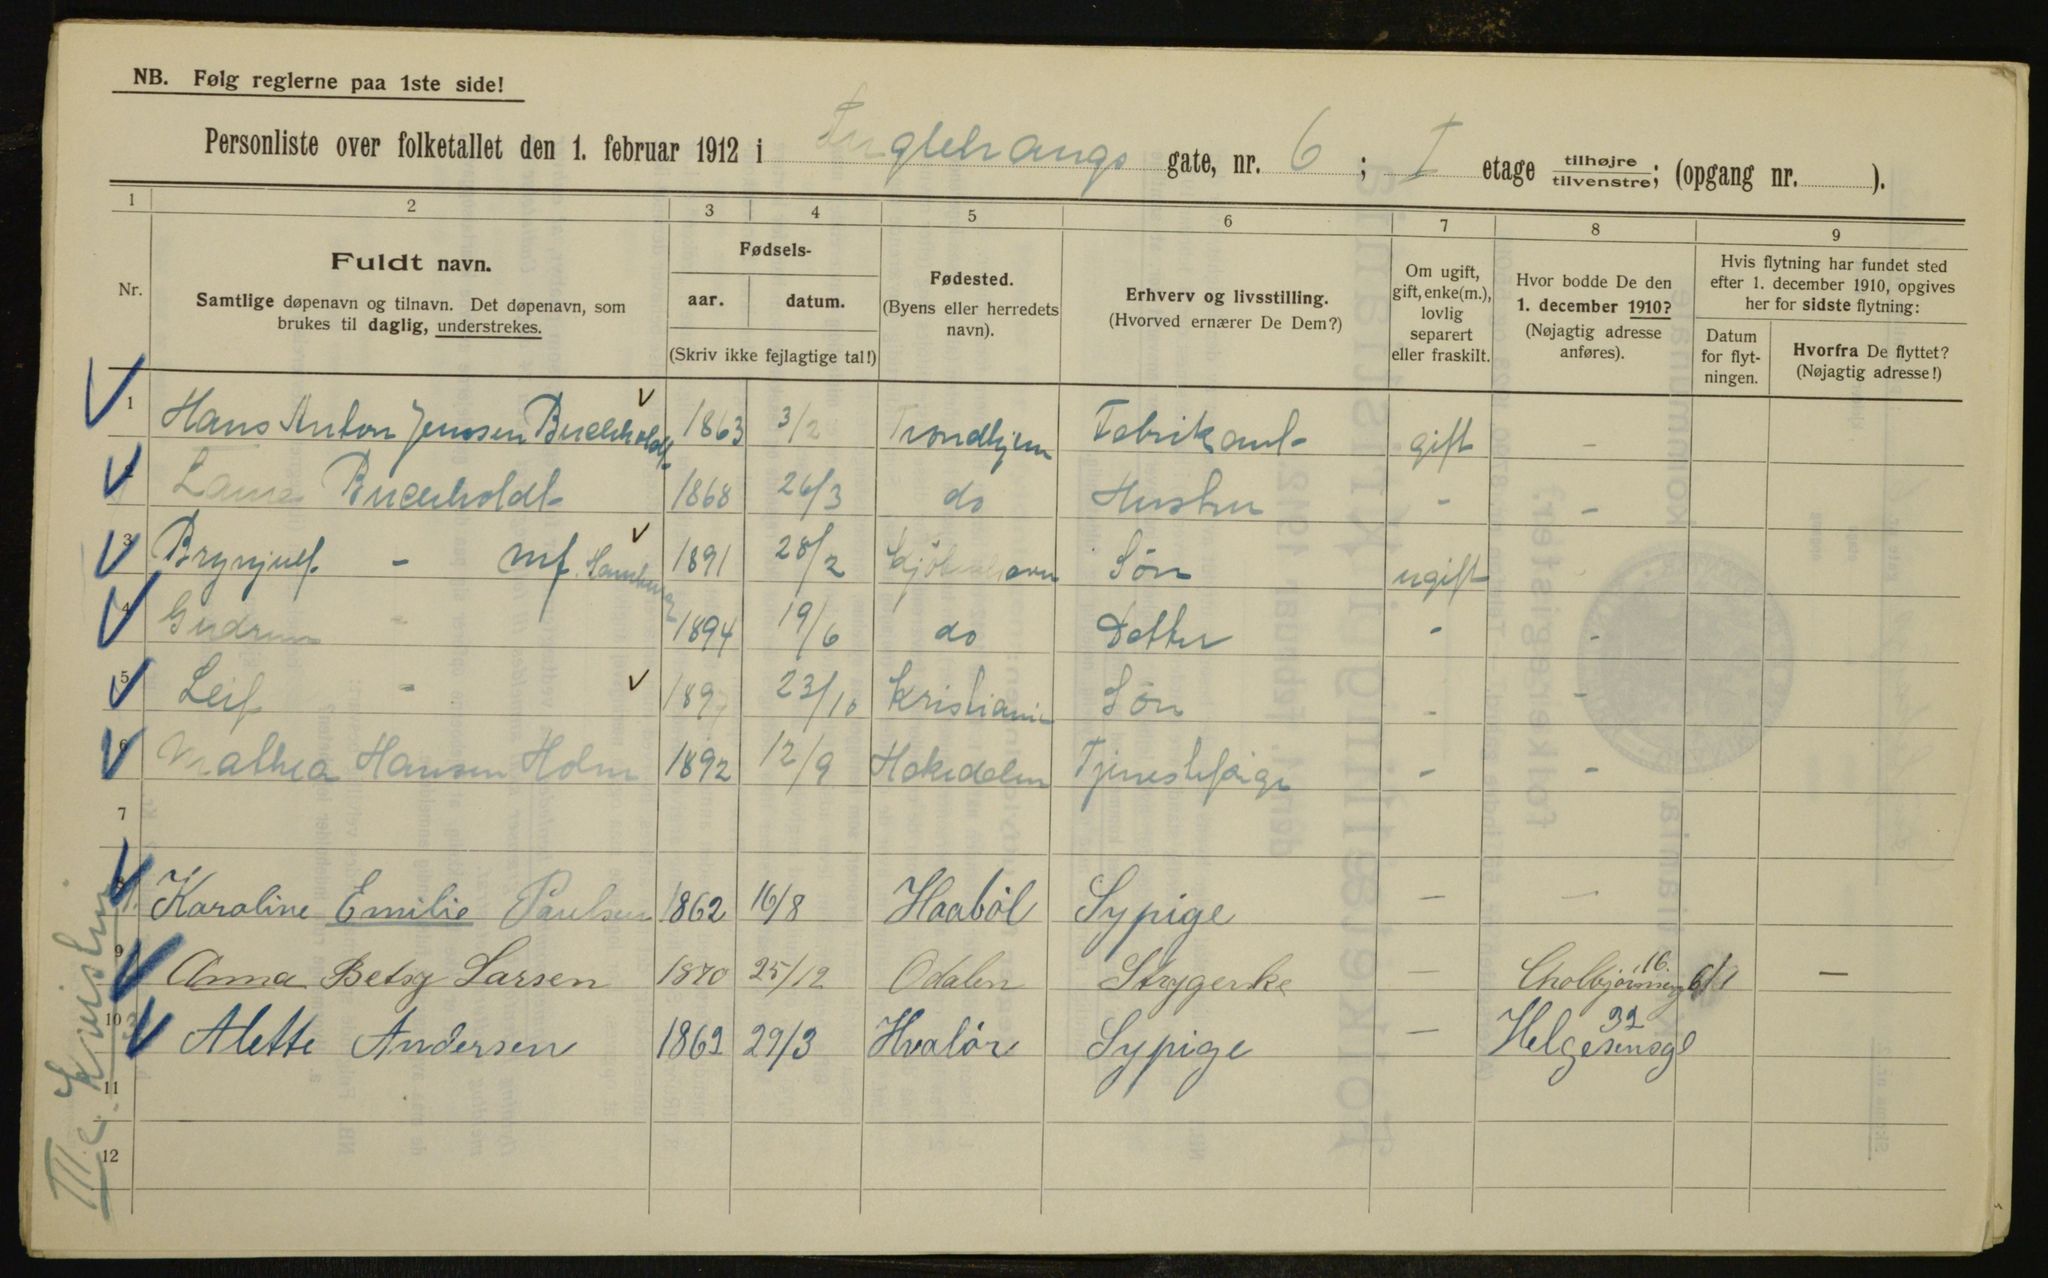 NB. Følg reglerne paa 1ste side!
Personliste over folketallet den 1. februar 1912 i Fuglehaugs gate, nr. 6; I etage tilhøjre/tilvenstre; (opgang nr. ).
1 2 3 4 5 6 7 8 9
Nr.
Fuldt navn.
Samtlige døpenavn og tilnavn. Det døpenavn, som
brukes til daglig, understrekes.
Fødsels-
aar. datum.
(Skriv ikke fejlagtige tal!)
Fødested.
(Byens eller herredets
navn).
Erhverv og livsstilling.
(Hvorved ernærer De Dem?)
Om ugift,
gift, enke(m.),
lovlig
separert
eller fraskilt.
Hvor bodde De den
1. december 1910?
(Nøjagtig adresse
anføres).
Hvis flytning har fundet sted
efter 1. december 1910, opgives
her for sidste flytning:
Datum
for flyt-
ningen.
Hvorfra De flyttet?
(Nøjagtig adresse!)
1 Hans Anton Jenssen Buchholdt 1863 3/2 Trondhjem Fabrikant gift -
2 Buchholdt 1868 26/3 do Hustru - -
3 Brynjulf - mf. 1891 28/2 Kjøbenhavn Søn ugift
4 Gudrun - 1894 19/6 do Datter - -
5 Leif - 1897 23/10 Kristiania Søn - -
6 Mathea Hansen Holm 1892 12/9 Hakedalen Tjenestepige - -
7
8 Karoline Emilie Paulsen 1862 16/8 Haabøl Sypige - -
9 Anna Betsy Larsen 1870 25/12 Odalen Strygerske - 16. -
10 Alette Andersen 1869 29/3 Hvalør Sypige - Helgesensg 32
11
12
III